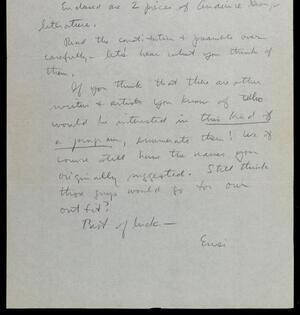 Enclosed are 2 pieces of Audience Group
literature.
Read the constitution & preamble over
carefully - let's hear what you think of
them.
If you think that there are other
writers & artists you know of who
would be interested in this kind of
a program, enumerate them! We of
course still have the names you
originally suggested. Still think
those guys would go for our
outfit?
Best of luck —